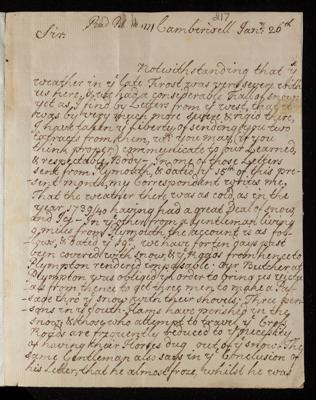 217
Read Feb. 14 1771
Camberwell Jany. 26th
Sir.
Notwithstanding that ye
weather in ye late Frost was very severe with
us here, & we had a considerable Fall of snow
yet as I find by Letters from ye west, that it
was by very much more severe & rigid there,
I have taken ye liberty of sending you two
extracts from them, wch you may (if you
think proper) communicate to our Learned,
& respectable Body - In one of those Letters
sent from Plymouth, & dated ye 15th of this pre-
sent month, my Correspondent writes me,
That the weather there was as cold, as in the
year 1739/40 having had a great Deal of snow
and Ice - In ye other from a Gentleman living
9 miles from Plymouth the account is as fol-
lows, & dated ye 19th. we have for ten days past
been covered with snow, & ye Roads from hence to
Plympton rendered impassable. Our Butcher at
Plympton was obliged in order to bring us Victu-
als from thence to get three men to make a Pas-
sage thro ye snow with their shovels; Three per-
sons in ye South-Hams have perished in the
snow, & those who attempt to travel ye Cross
Roads are frequently reduced to ye necessity
of having their Horses dug out of ye snow. The
same Gentleman also says in ye Conclusion of
his Letter, that he almost froze, whilst he was